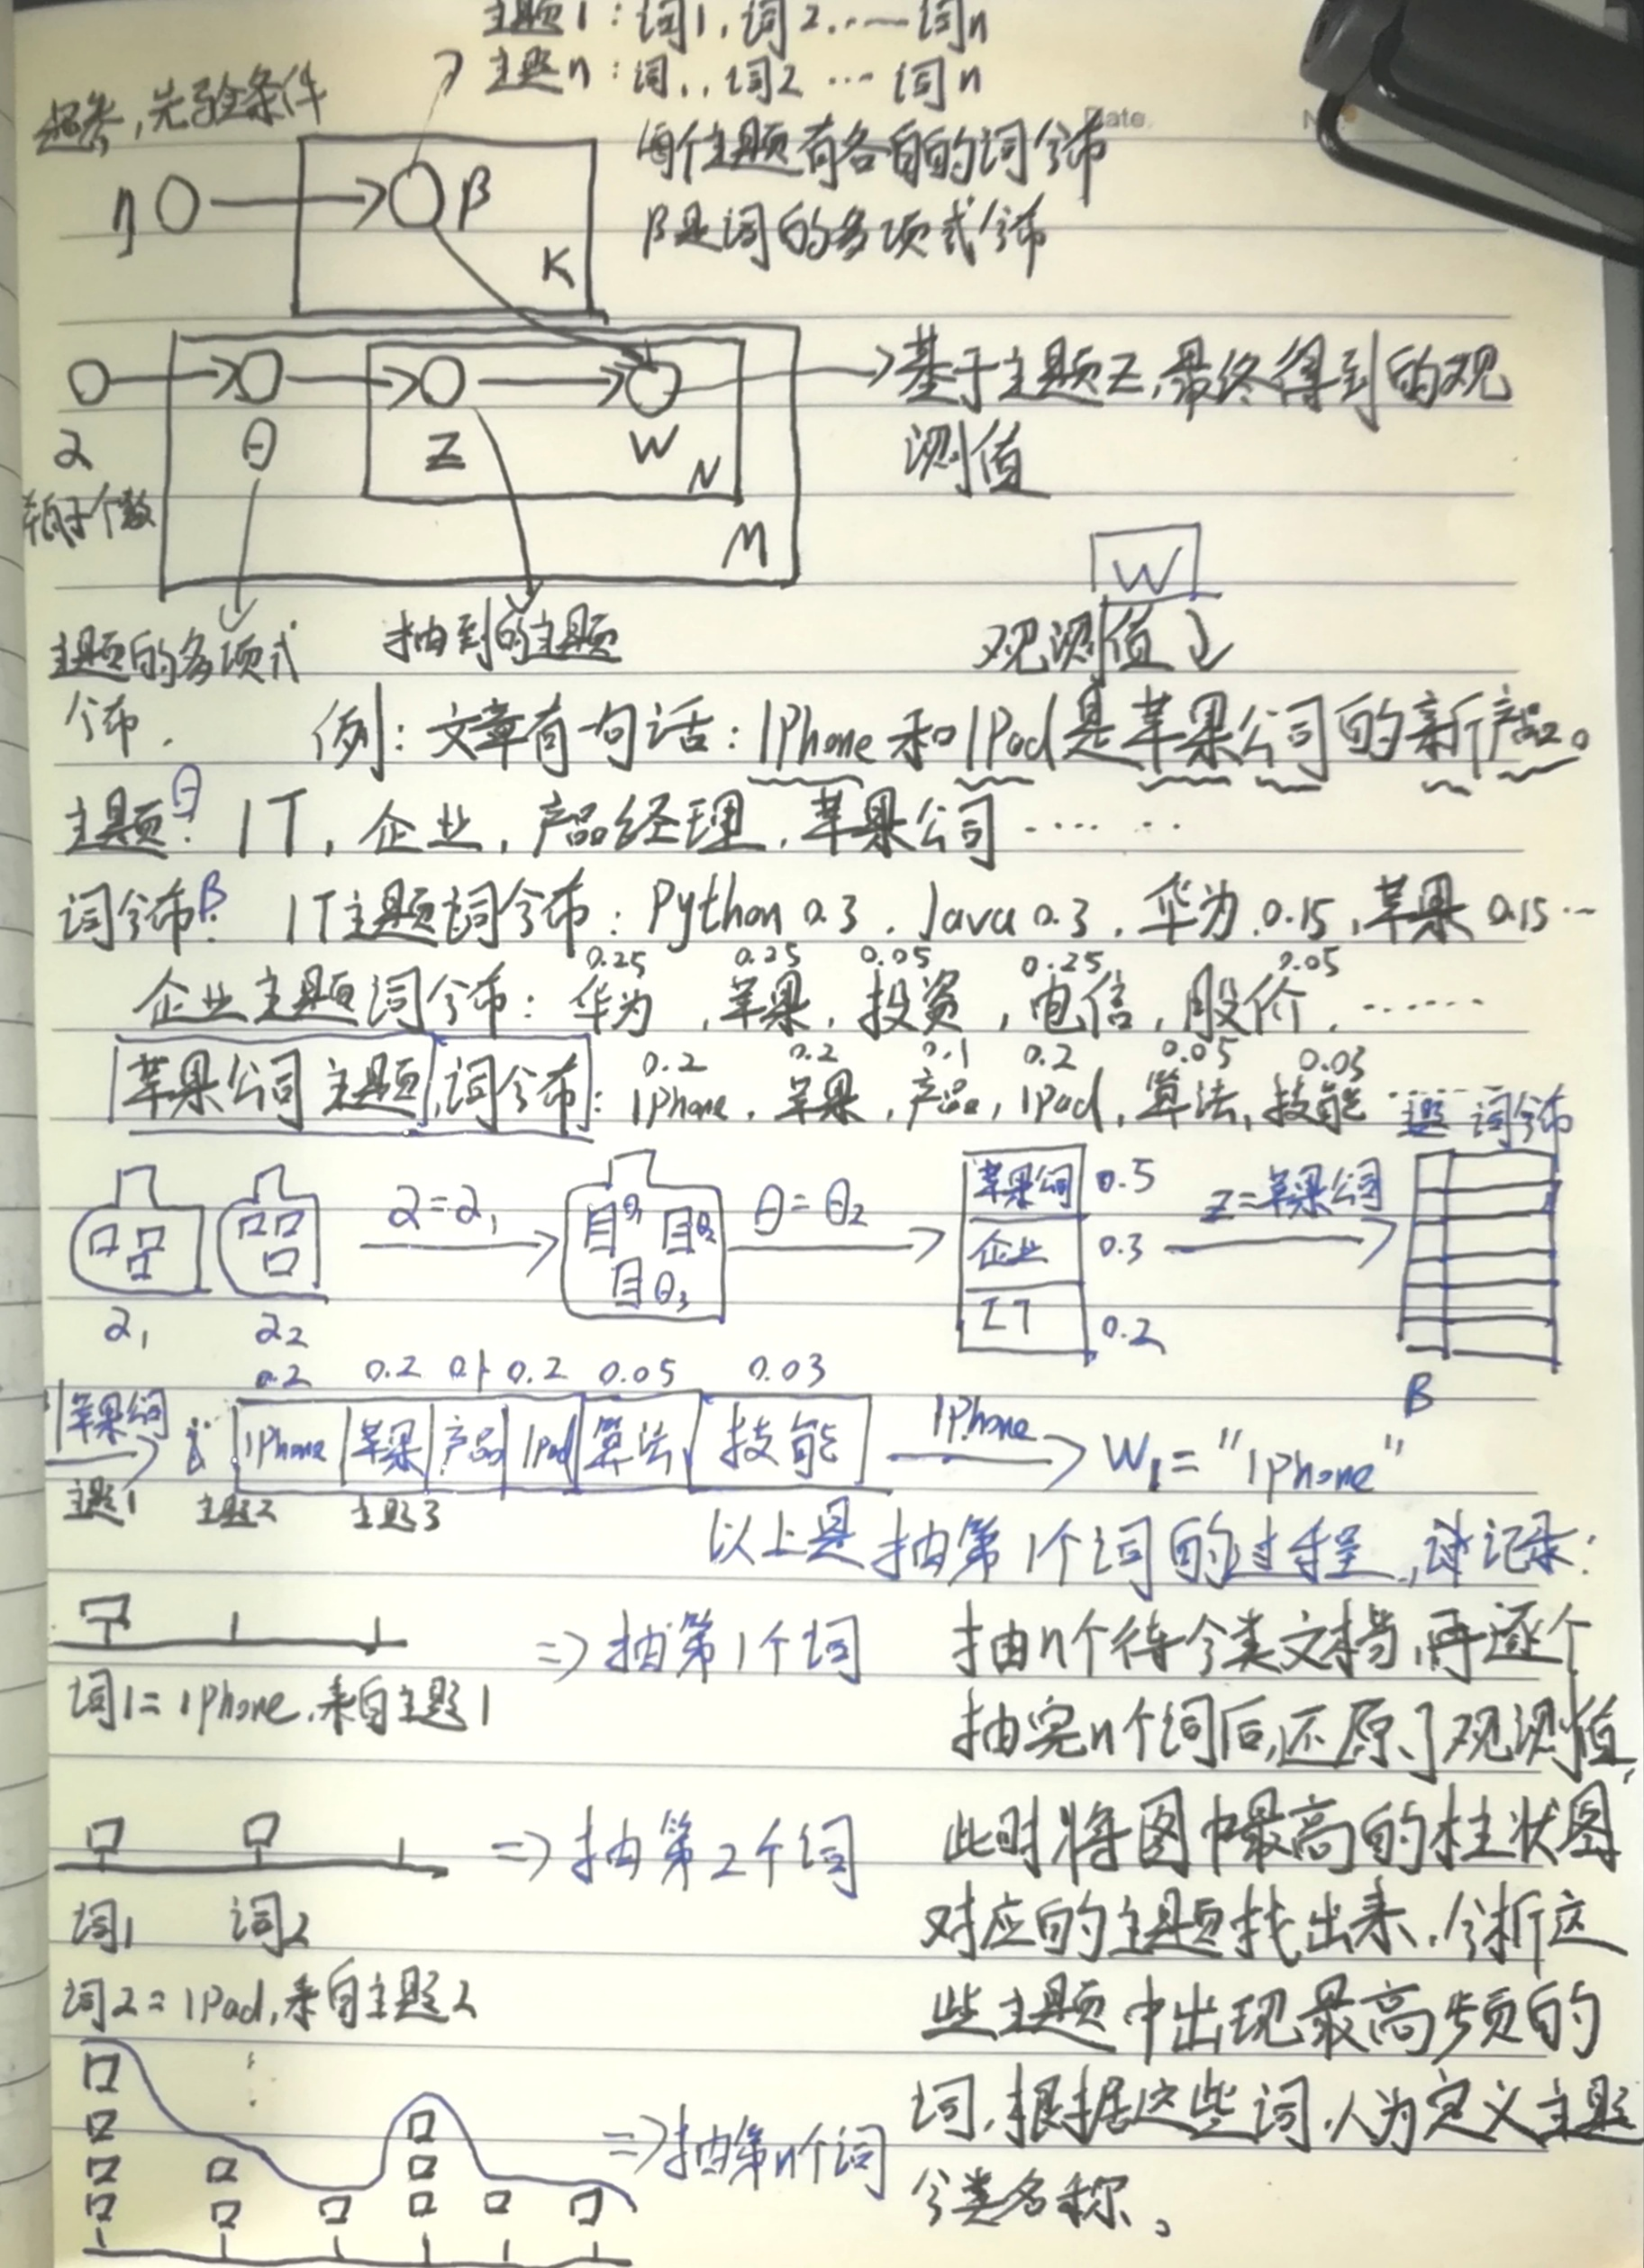 主题1：词1，词2.……词n
主题n：词1，词2 … 词n
超参，先验条件
Date.
每个主题有各自的词分布
η
β
β是词的多项式分布
K
基于主题Z，最终得到的观
测值
α
θ
Z
W
N
M
个数
W
主题的多项式
分布.
抽到的主题
观测值
例：文章有句话：IPhone和IPad是苹果公司的新产品。
主题θ：IT，企业，产品经理，苹果公司……
词分布β：IT主题词分布：Python 0.3，Java 0.3，华为 0.15，苹果 0.15…
0.25 0.25 0.05 0.25 0.05
企业主题词分布：华为，苹果，投资，电信，股价，……
0.2 0.2 0.1 0.2 0.05 0.03
苹果公司主题词分布：IPhone，苹果，产品，IPad，算法，技能……
主题 词分布
α=α1
θ1 θ2 θ3
θ=θ2
苹果公司 0.5
企业 0.3
IT 0.2
Z=苹果公司
α1 α2
β
0.2 0.2 0.1 0.2 0.05 0.03
苹果公司
IPhone 苹果 产品 IPad 算法 技能
IPhone
W1="IPhone"
主题1 主题2 主题3
以上是抽第1个词的过程，记录：
=>抽第1个词
词1=IPhone，来自主题1
抽n个待分类文档，再逐个
抽完n个词后，还原了观测值，
=>抽第2个词
词1 词2
词2=IPad，来自主题2
此时将图中最高的柱状图
对应的主题找出来，分析这
些主题中出现最高频的
词，根据这些词，人为定义主题
分类名称。
=>抽第n个词